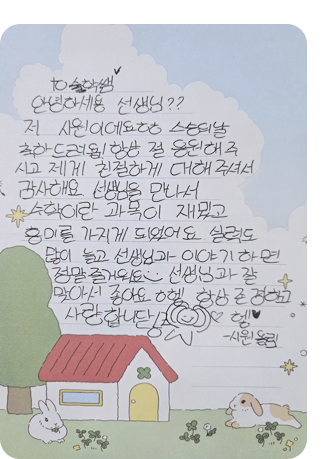 to 수학쌤♥
안녕하세용 선생님??
저 시원이에요ㅎㅎ 스승의날
축하드려요! 항상 절 응원해주
시고 제게 친절하게 대해주셔서
감사해요 선생님을 만나서
수학이란 과목이 재밌고
흥미를 가지게 되었어요 실력도
많이 늘고 선생님과 이야기하면
정말 즐거워요 선생님과 잘
맞아서 좋아요 ㅎ헿 항상 존경하고
사랑합니당 헿♥
-시원 올림